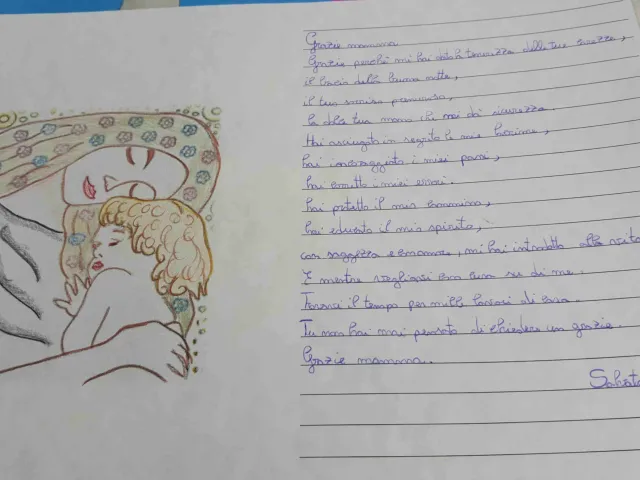 Grazie mamma
Grazie perché mi hai dato la tenerezza delle tue carezze,
il bacio della buona notte,
il tuo sorriso premuroso,
la dolce tua mano che mi dà sicurezza.
Hai asciugato in segreto le mie lacrime,
hai incoraggiato i miei passi,
hai corretto i miei errori,
hai protetto il mio cammino,
hai educato il mio spirito,
con saggezza e amore, mi hai introdotto alla vita
E mentre vegliavi con cura su di me
Trovavi il tempo per mille lavori di casa.
Tu non hai mai pensato di chiedere un grazie.
Grazie mamma.